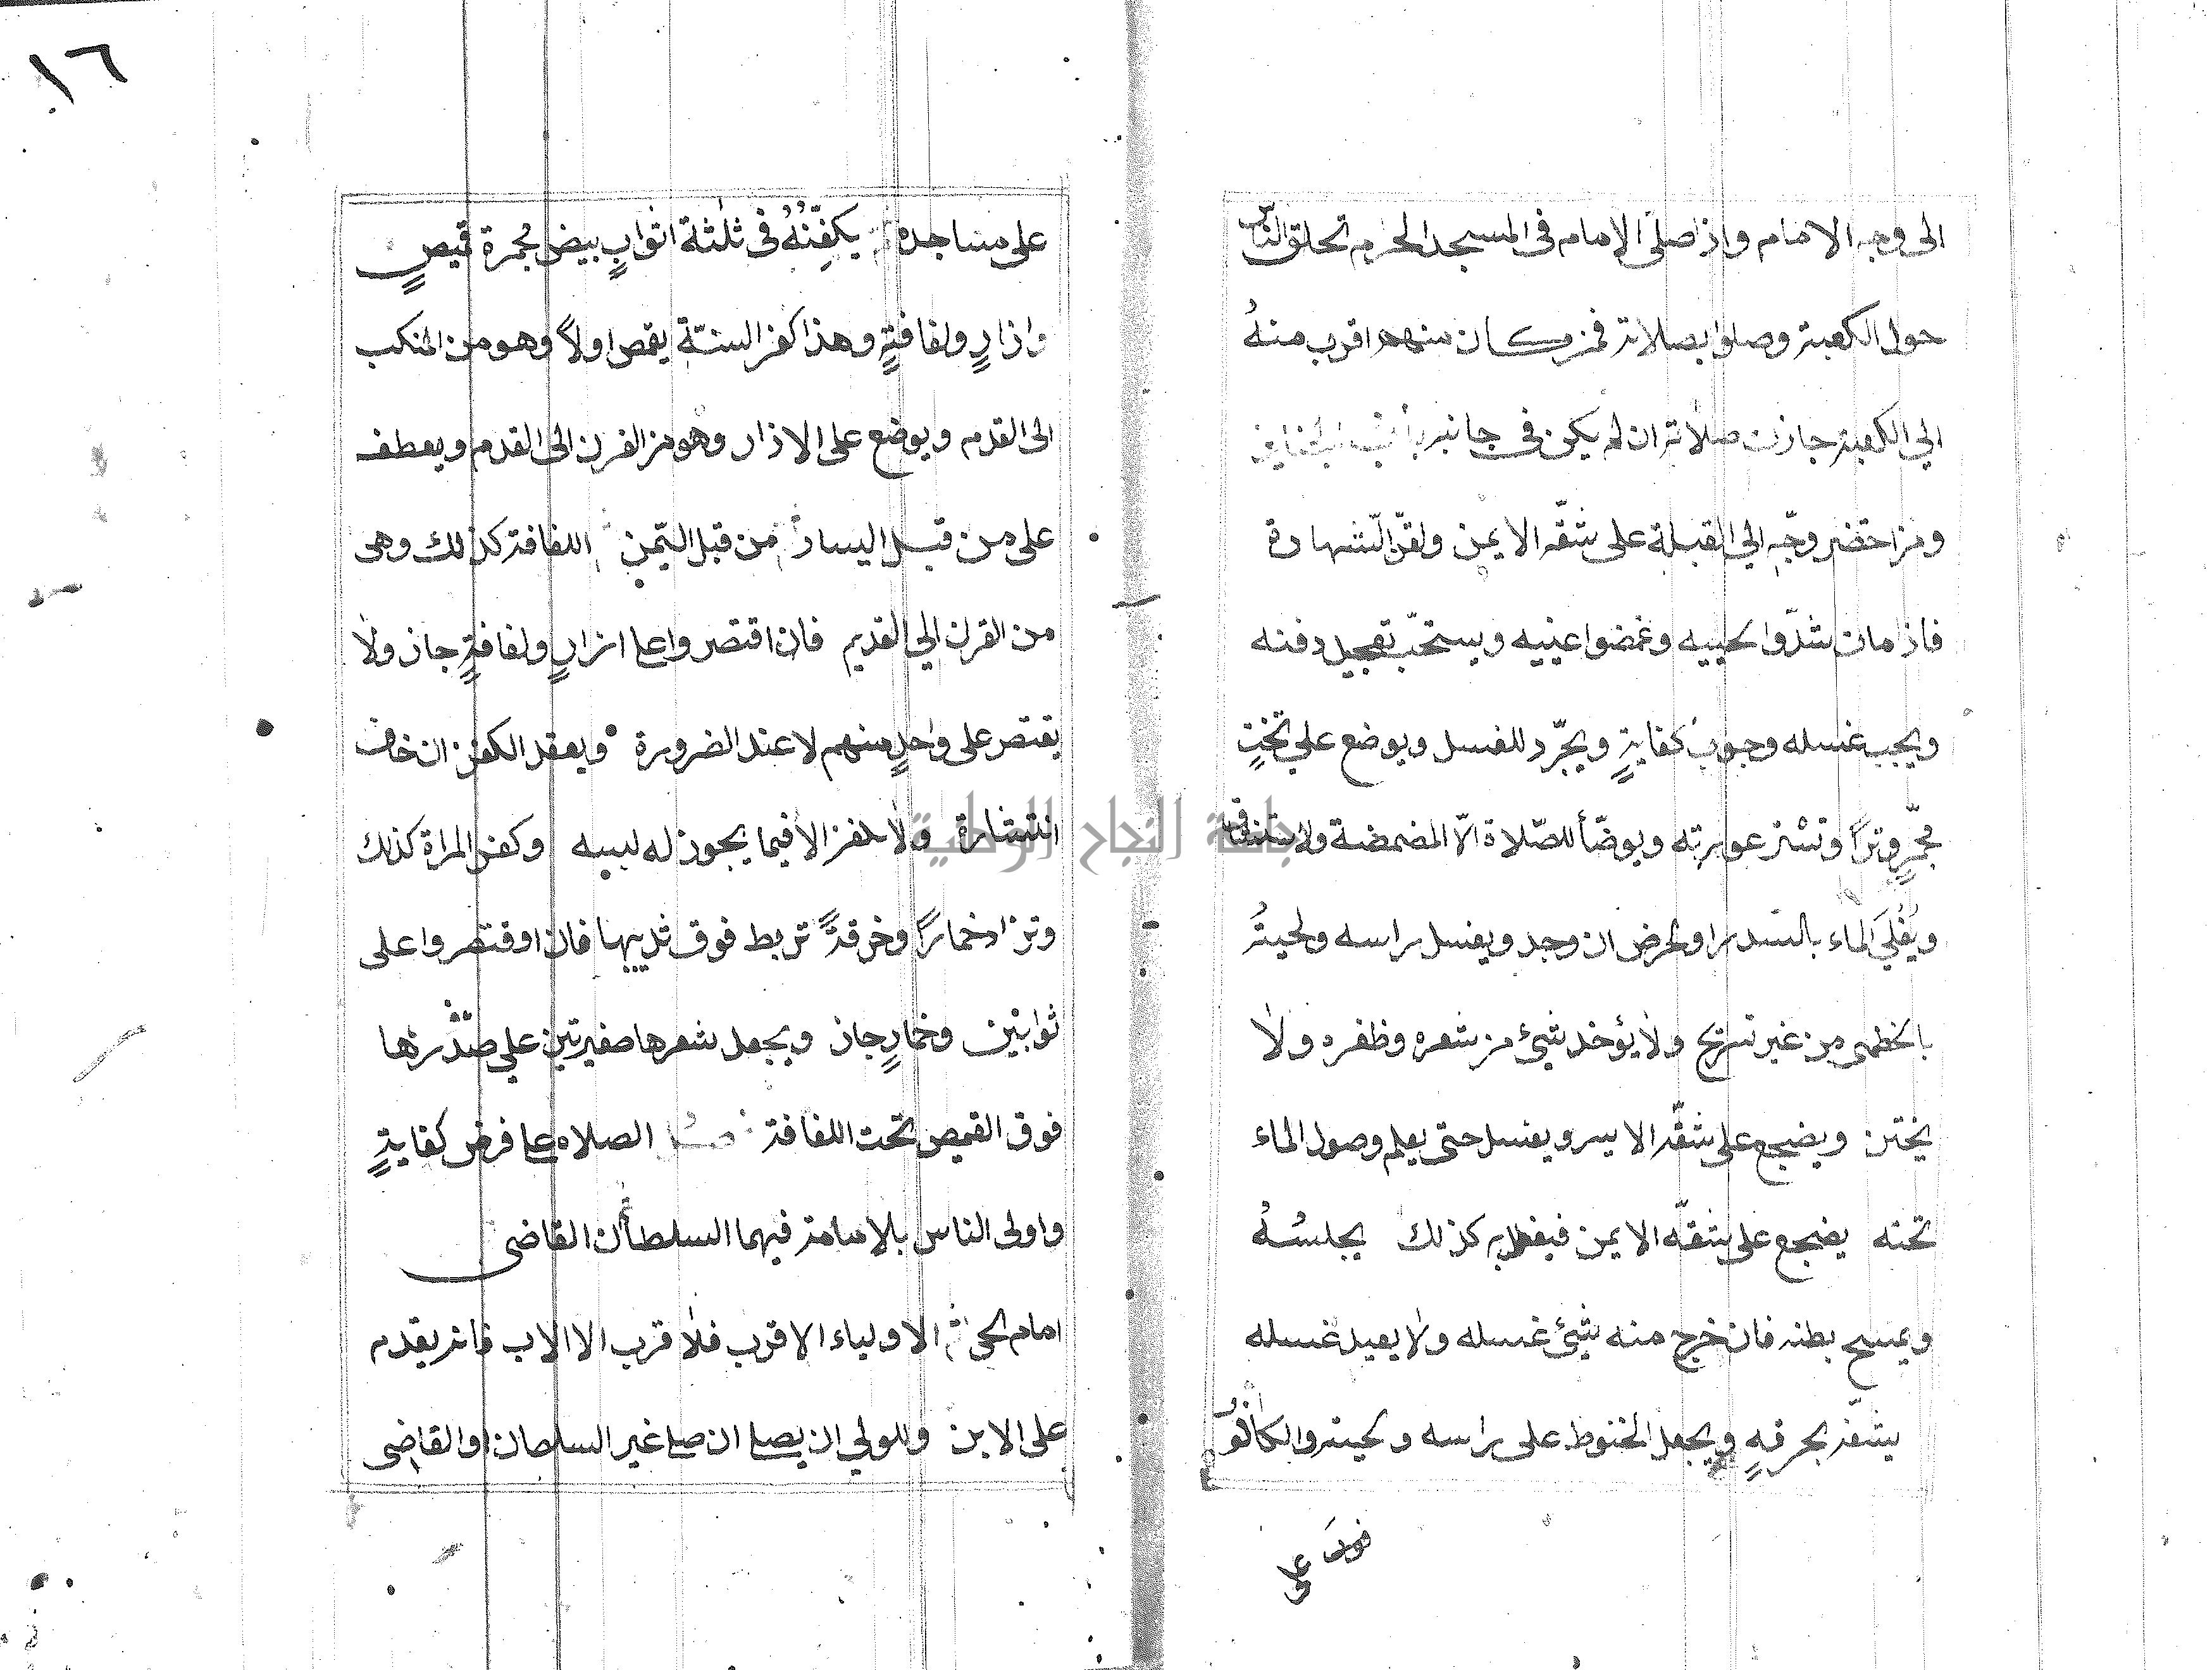 ١٦
الى وجه الامام واذ اصلى الامام فى المسجد الحرام تحلق الناس
حول الكعبة وصلوا بصلاته فمن كان منهم اقرب منهُ
الي الكعبة جازت صلاته ان لم يكن فى جانبه
ومن احتضر وجّه الي القبلة على شقّه الايمن ولقّن الشهادة
فاذا مات شدّوا لحييه وغمضوا عينيه ويستحبّ تعجيل دفنه
ويجب غسله وجوبَ كفايةٍ ويجرّد للغسل ويوضع علي تختٍ
مجمّرٍ وترًا وتسْتر عورته ويوضّأ للصّلاة الّا المضمضة والاستنشاق
ويُغْلَي الماء بالسدر او الحرض ان وجد ويغسل راسه ولحيتهُ
بالخطمى من غير تسريح ولا يؤخذ شيئ من شعره وظفره ولا
يختن ويضجع على شقّه الايسر ويغسل حتى يعلم وصول الماء
تحته يضجع على شقّه الايمن فيغسل به كذلك يجلسُهُ
ويمسح بطنه فان خرج منه شيئ غسله ولا يعيد غسله
ينشّفه بخرقهٍ ويجعل الحنوط على راسه ولحيته والكافُو
فورَ على
على مساجده ثم يكفِّنُهُ فى ثلٰثة اثوابٍ بيض مُجمرة قميصٍ
وازارٍ ولفافةٍ وهذا كفن السنّة يقمص اولًا وهو من المنكب
الى القدم ويوضع على الازار وهو من القرن الى القدم ويعطف
على من قبل اليسار من قبل اليّمين اللفافة كذلك وهى
من القرن الي القديم فان اقتصروا على ازارٍ ولفافةٍ جاز ولا
يقتصر على واحدٍ منهم لا عند الضرورة ويعقد الكفن ان خاف
انتشاره ولا يكفن الا فيما يجوز له لبسه وكفن المراة كذلك
وتزاد خمارًا وخرقةً تربط فوق ثدييها فان اوقتصروا على
ثوابين وخمارٍ جاز ويجعل شعرها صفيرتين علي صدْرها
فوق القميص تحت اللفافة فصل الصلاه على فرض كفايةٍ
واولى الناس بالامامة فيهما السلطان القاضى
امام الحى ثم الاولياء الاقرب فلاقرب الا الاب فانه يقدم
على الابن وللولي ان يصلى ان صلى غير السلطان او القاضى
جامعة النجاح الوطنية